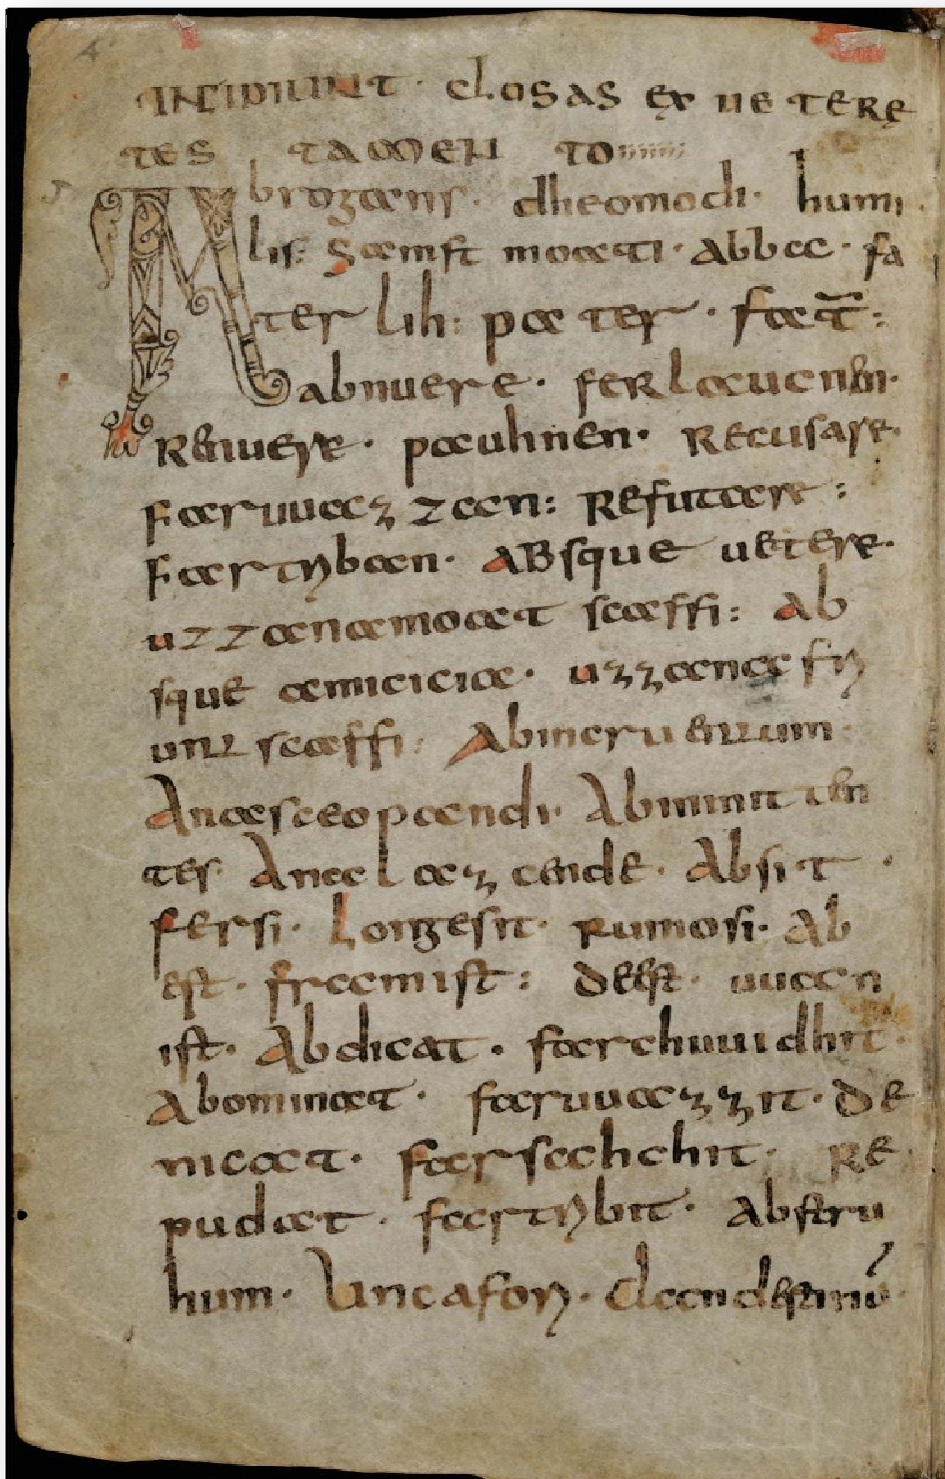 INCIPIUNT · CLOSAS EX UETERE
TES TAMEN TO
Abrogans · dheomodi · humi
lis: samft moati · abba · fa
ter lih: pater · fat̄:
abnuere · ferlaucnen ·
Renuere · pauhnen · Recusare ·
faruuazzan: Refutare:
fartriban · ABsque uetere ·
uzzanamoat scaffi: Ab
sque amicicia · uzzana fri
untscaffi: Abincruentum ·
Anasceopandi · Abinmitten
tes Analazcende · Absit ·
fersi · Longesit · rumosi · Ab
est · framist: deest · uuan
ist · Abdicat · farchuuidhit ·
Abominat · faruuazzit · de
nicat · farsahchit · RE
pudat · fartribit · Abstru
hum ·